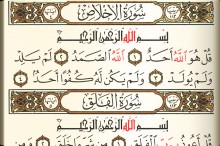 سُورَةُ الإِخْلَاصِ
بِسْمِ اللَّهِ الرَّحْمَٰنِ الرَّحِيمِ
قُلْ هُوَ اللَّهُ أَحَدٌ ١ اللَّهُ الصَّمَدُ ٢ لَمْ يَلِدْ
وَلَمْ يُولَدْ ٣ وَلَمْ يَكُن لَّهُ كُفُوًا أَحَدٌ ٤
سُورَةُ الفَلَقِ
بِسْمِ اللَّهِ الرَّحْمَٰنِ الرَّحِيمِ
قُلْ أَعُوذُ بِرَبِّ الْفَلَقِ ١ مِن شَرِّ مَا خَلَقَ ٢ وَمِن